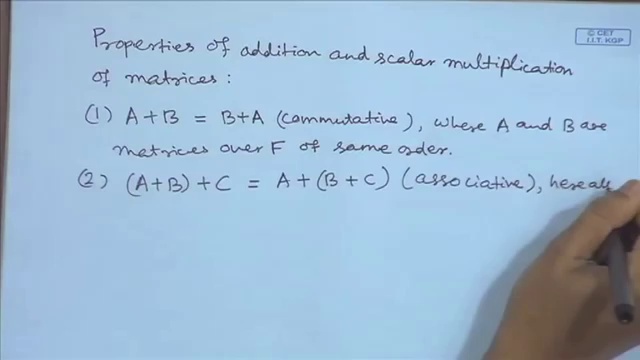 © CET
I.I.T. KGP
Properties of addition and scalar multiplication
of matrices :
(1) A+B = B+A (commutative), where A and B are
matrices over F of same order.
(2) (A+B) + C = A + (B + C) (associative), here